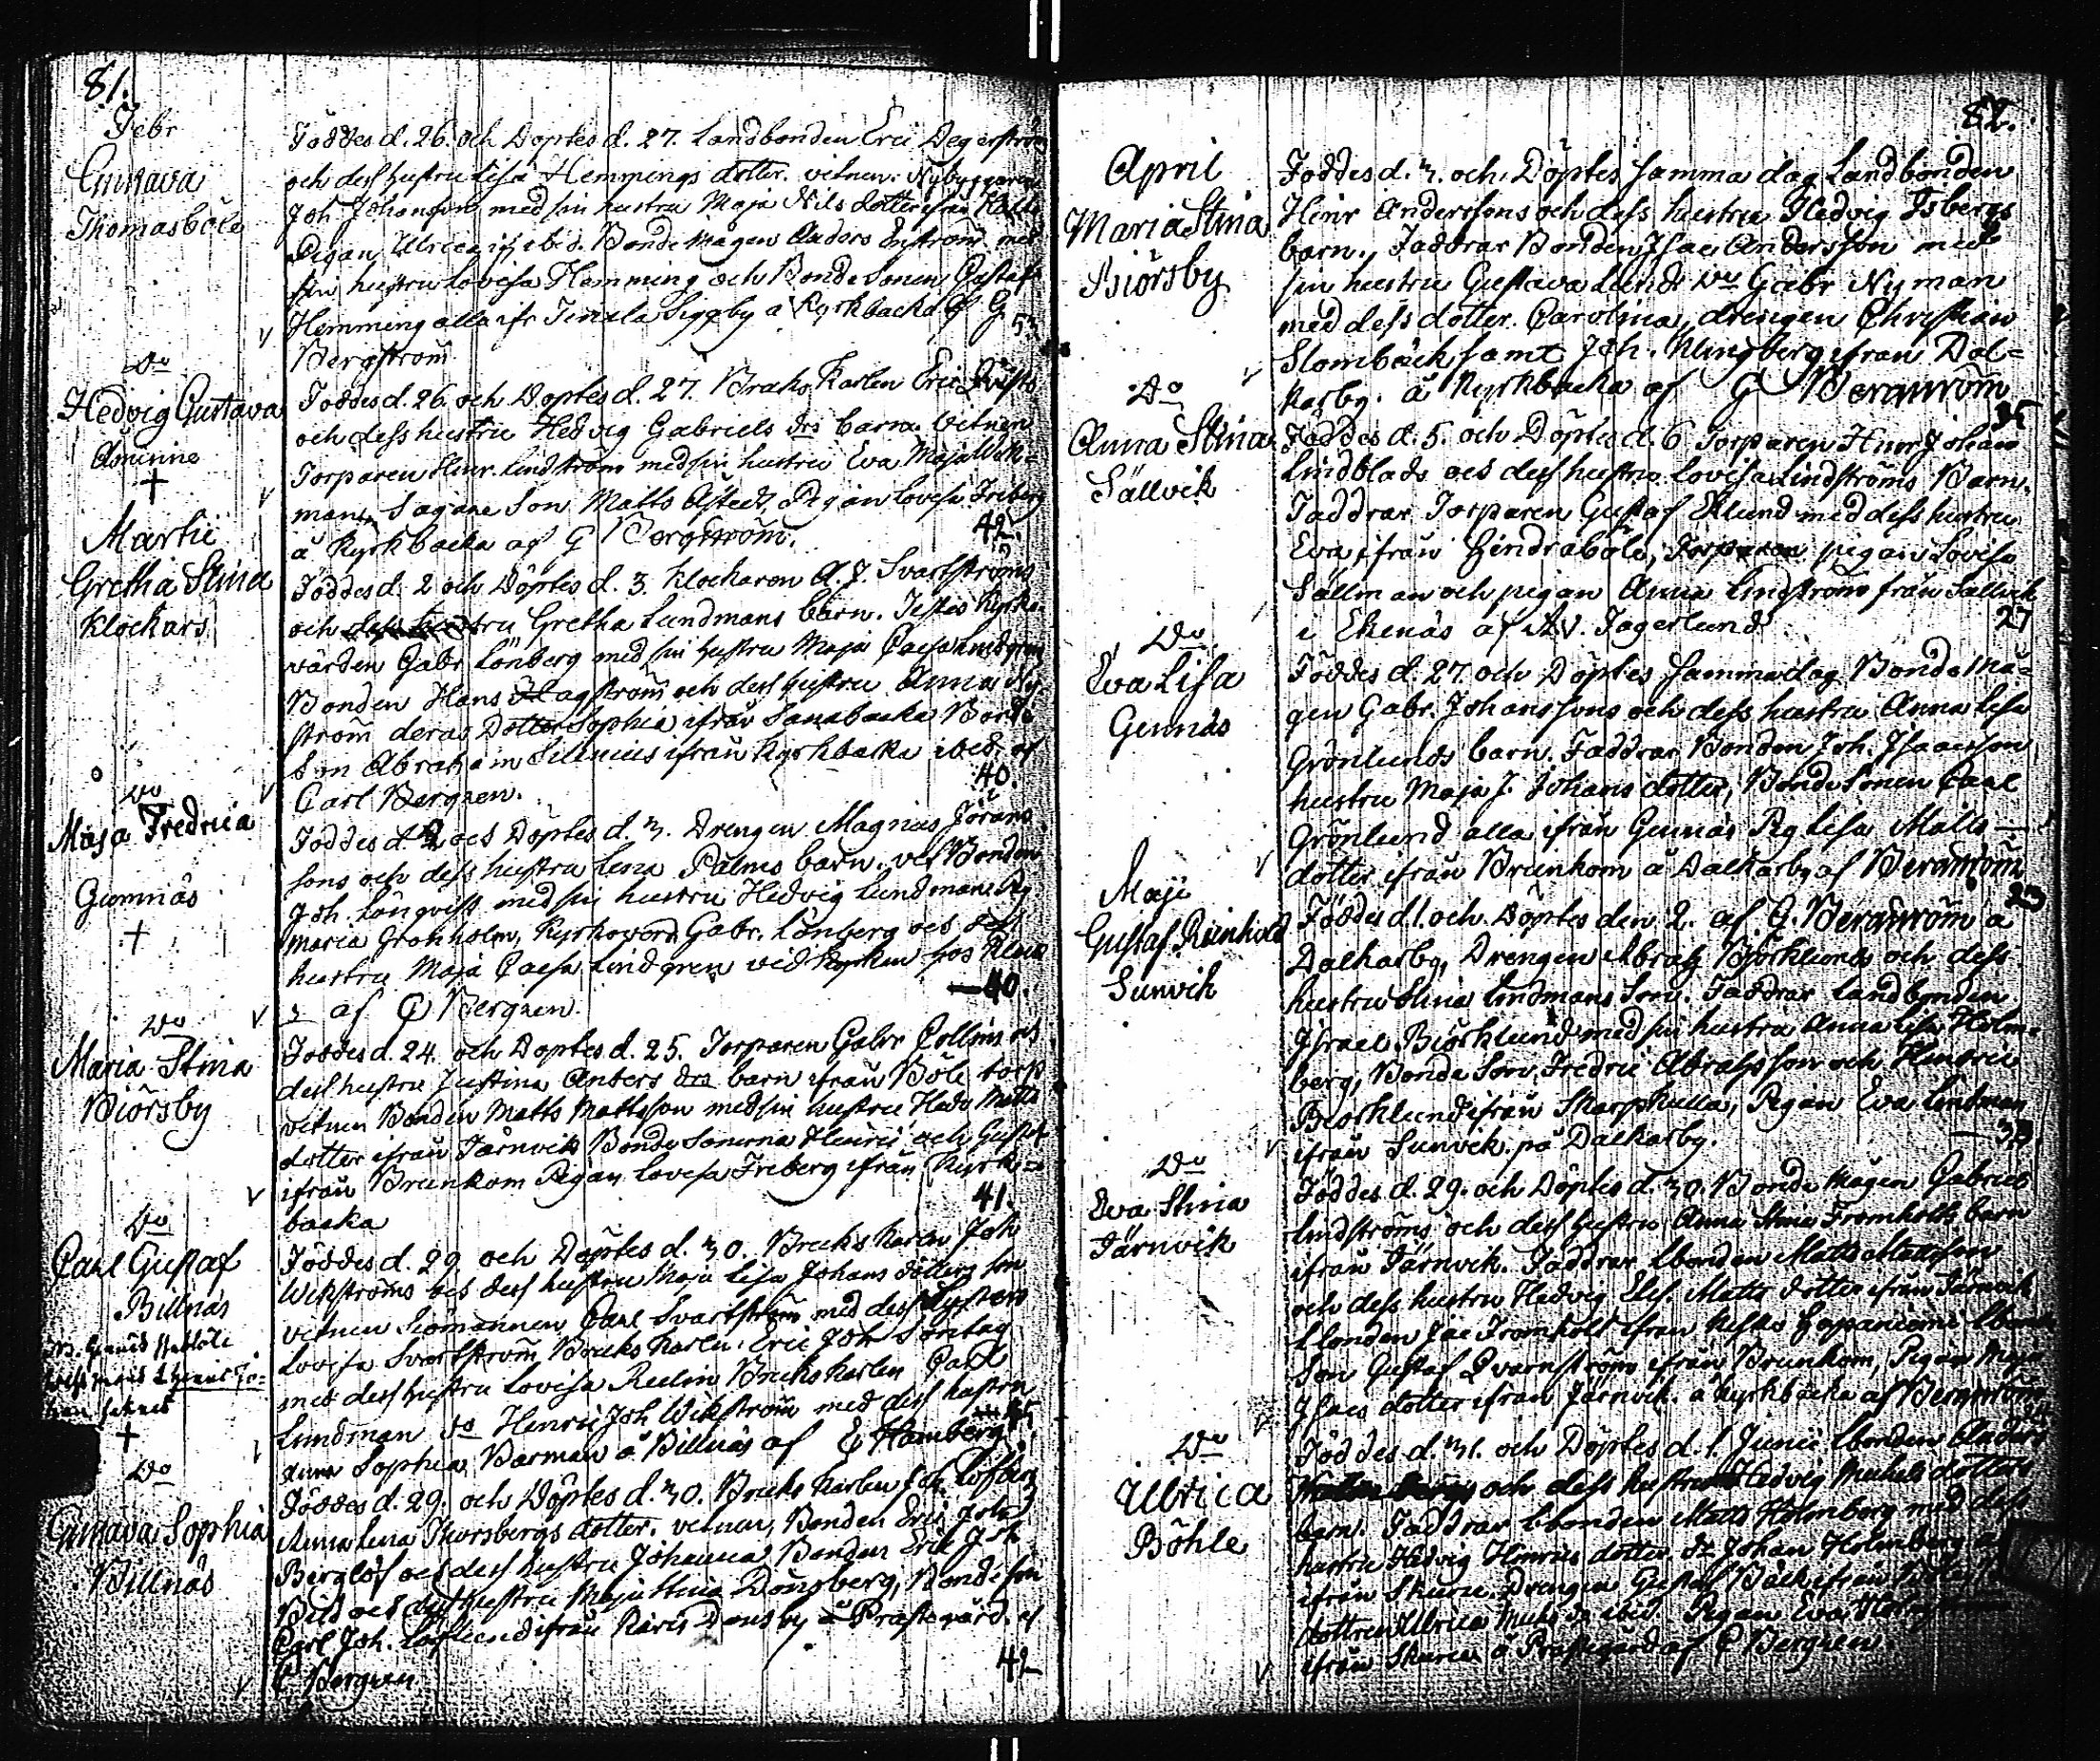 81.
Febr
Gustava
Thomasböle
Föddes d. 26. och Döptes d. 27. Landbonden Eric Degerström
och dess hustru Lisa Hemmings dotter. vitnen. Nybyggaren
Joh. Johansson med sin hustru Maja Nils dotter ifrån
Pigan Ulrica ibid. Bonde Mågen Anders Enström med
sin hustru Lovisa Hemming och Bonde Sonen Gustaf
Hemming alla ifr Tenala Siggby å Kyrkbacka af G
Bergström
Do
Hedvig Gustava
Åminne
Föddes d. 26 och Döptes d. 27. Bruks Karlen Eric
och dess hustru Hedvig Gabriels drs barn. Vitnen
Torparen Henr. Lindström med sin hustru Eva Maja
man, Sågare Son Matts Åstedt, Pigan Lovisa Friberg
å Kyrkbacka af G Bergström.
42.
Martii
Gretha Stina
Klockars
Föddes d. 2 och Döptes d. 3. Klockaren A. J. Svartströms
och dess hustru Gretha Lundmans barn. Testes Kyrko
värden Gabr. Lönberg med sin hustru Maja Caisa Lindgren
Bonden Hans Hagström och dess hustru Anna Ny-
ström deras Dotter Sophia ifrån Sannbacka Bonde
Son Abraham Silenius ifrån Kyrkbacka ibid. af
Carl Bergren.
40.
Do
Maja Fredrica
Gunnäs
Föddes d. 2 och Döptes d. 3. Drengen Magnus Jörans
sons och dess hustru Lena Palmes barn. Vit Bonden
Joh. Lönqvist med sin hustru Hedvig Lundman, Pig
Maria Gronholm, Kyrkovärd. Gabr. Lönberg och dess
hustru Maja Caisa Lindgren vid Kyrkan hos
af C Bergren.
40.
Do
Maria Stina
Biörsby
Föddes d. 24. och Döptes d. 25. Torparen Gabr Collins och
dess hustru Justina Anders dra barn ifrån Böle torp
vitnen Bonden Matts Mattsson med sin hustru Hedv Matts
dotter ifrån Järnvik Bonde Sönerna Henric och Gustaf
ifrån Brunkom Pigan Lovisa Friberg ifrån Kyrk=
backa
41.
Do
Carl Gustaf
Billnäs
Föddes d. 29 och Döptes d. 30. Bruks Karlen Joh
Wikströms och dess hustru Maja Lisa Johans dotters son
vitnen Siömannen Carl Svartström med dess Syster
Lovisa Svartström Bruks Karlen Eric Joh Söntag
med dess hustru Lovisa Reelin Bruks Karlen Carl
Lundman do Henric Joh Wikström med dess hustru
Anna Sophia Barman å Billnäs af E Hamberg
Do
Gustava Sophia
Billnäs
Föddes d. 29. och Döptes d. 30. Bruks Karlen Joh. Löfberg
Anna Lena Thorsbergs dotter. vitnen, Bonden Eric Joh
Berglöf och dess hustru Johanna Bonden Erik Joh
och dess hustru Maja Stina Dönsberg, Bonde son
Carl Joh. Löflund ifrån Karis Dönsby å Prästegård af
C Bergren
42
82.
April
Maria Stina
Biörsby
Föddes d. 3. och Döptes samma dag Landbonden
Henr Anderssons och dess hustru Hedvig Isbergs
barn. Faddrar Bonden Isac Andersson med
sin hustru Gustava Lund do Gabr Nyman
med dess dotter Carolina, drengen Christian
Slombäck samt Joh. Klingberg ifrån Dal=
karby. å Kyrkbacka af G Bergström
35
Do
Anna Stina
Sällvik
Föddes d. 5. och Döptes d. 6 Torparen Henr Johan
Lindblads och dess hustru Lovisa Lindströms Barn.
Faddrar Torparen Gustaf Eklund med dess hustru
Eva ifrån Hindraböle, Torparen pigan Lovisa
Sällman och pigan Anna Lindström från Sällvik
i Ekenäs af A V. Fagerlund
27
Do
Eva Lisa
Gennäs
Föddes d. 27. och Döptes samma dag Bonde Må-
gen Gabr. Johanssons och dess hustru Anna Lisa
Grönlunds barn. Faddrar Bonden Joh. Isaacsson
hustru Maja J. Johans dotter, Bonde Sonen Carl
Grönlund alla ifrån Gennäs Pig Lisa Matts
dotter ifrån Brunkom å Dalkarby af Bergström
23
Maji
Gustaf Reinhold
Sunvik
Föddes d 1. och Döptes den 2. af G. Bergström å
Dalkarby, Drengen Abrah Björklunds och dess
hustru Stina Lindmans Son. Faddrar Landbonden
Israel Biörklund med sin hustru Anna Lisa Holm-
berg, Bonde Son Fredric Abrahsson och Henric
Biorklund ifrån Skarpkulla, Pigan Eva Lindman
ifrån Sunvik på Dalkarby.
Do
Eva Stina
Järnvik
Föddes d. 29. och Döptes d. 30. Bonde Mågen Gabriel
Lindströms och dess hustru Anna Stina Fromholts barn
ifrån Järnvik. Faddrar bonden Matts Mattsson
och dess hustru Hedvig Elis. Matts dotter ifrån Järnvik
bonden Jac Fromholt ifrån
Son Gustaf Qvarnström ifrån Brunkom, Pigan Maja
Isacs dotter ifrån Järnvik. å Kyrkbacka af Bergström
Do
Ulrica
Böhle
Föddes d. 31. och Döptes d. 1. Junii bonden Anders
och dess hustru Hedvig Michels dotters
barn. Faddrar bonden Matts Holmberg med dess
hustru Hedvig Henrics dotter do Johan Holmberg
ifrån Skuru. Drengen Gustaf Bäck ifrån
dottren Ulrica ibid. Pigan Eva
ifrån Skuru å Prästegård af C Bergren